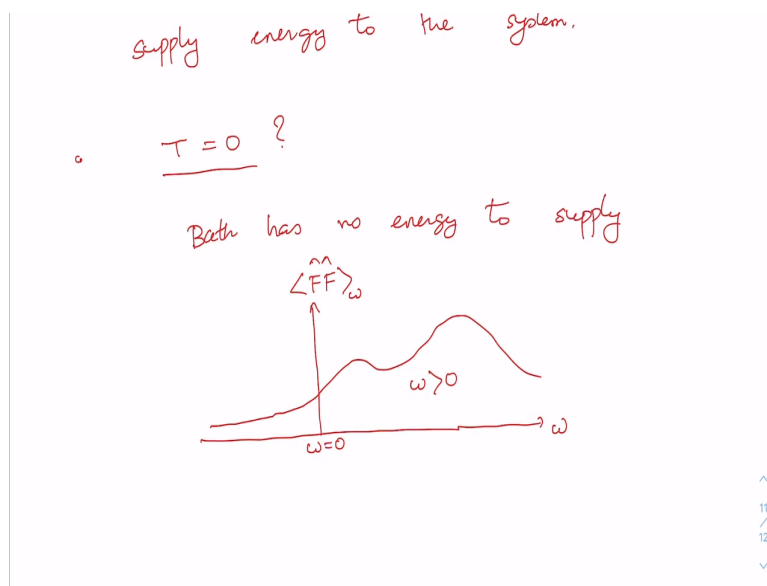 supply energy to the system.
T = 0 ?
Bath has no energy to supply
<F̂F̂>ω
ω>0
ω
ω=0
11
/
12